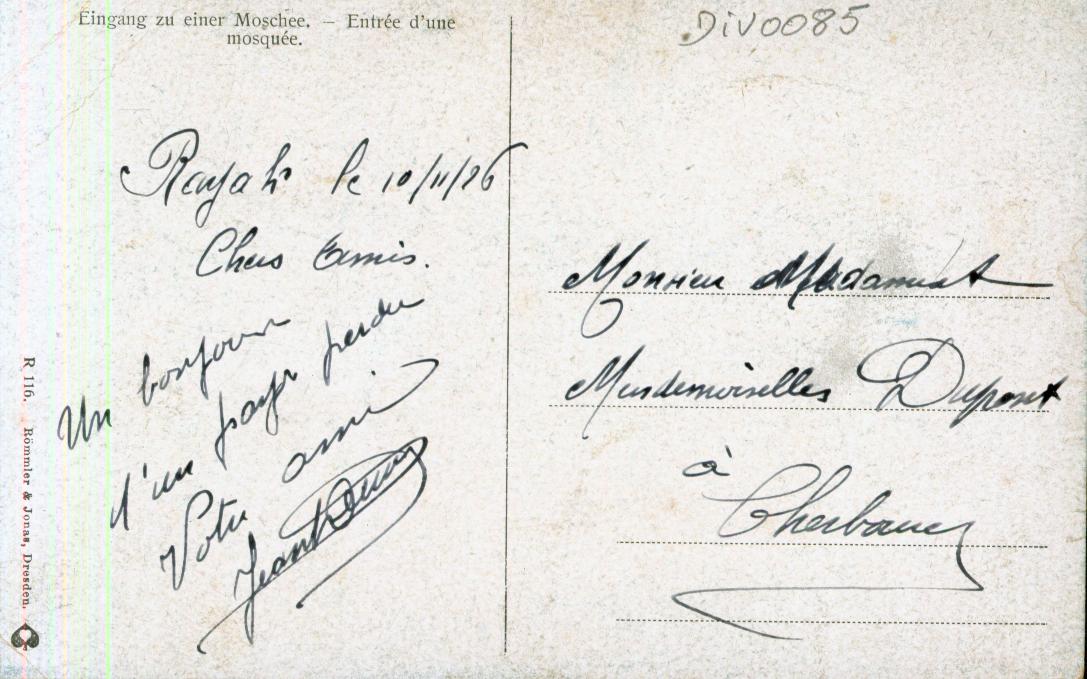 Eingang zu einer Moschee. — Entrée d'une
mosquée.
DiV0085
Rayak le 10/11/26
Chers Amis.
Un bonjour
d'un pays perdu
Votre ami
Jean
Monsieur Madame et
Mesdemoiselles Dupont
à
Cherbourg
R 116. Römmler & Jonas, Dresden.